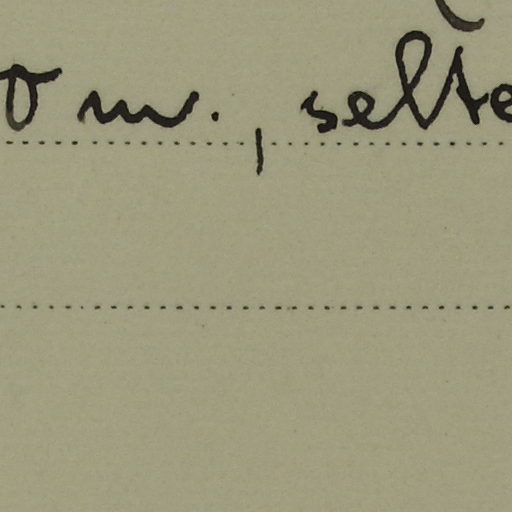 0 m., selte